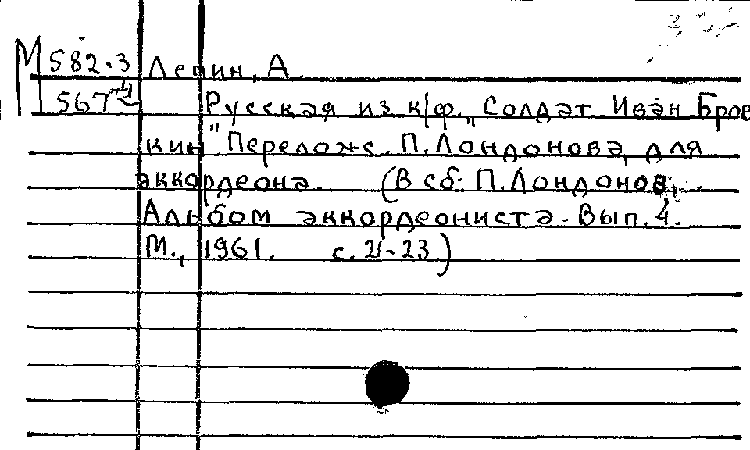 М 582-3 Лепин, А
567
Русская из к/ф. „Солдат Иван Бров
кин" Перелож. П. Лондонова, для
аккордеона. (В сб: П. Лондонов,
Альбом аккордеониста. Вып. 4.
М., 1961. с. 21-23)